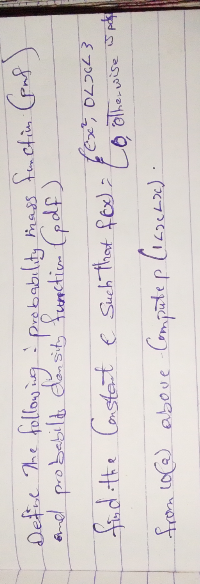 Define The following: probability mass function (pmf)
and probability density function (pdf)
find the Constant C Such that f(x) = { Cx², 0<x<3
0, otherwise is pdf
from 10(a) above Compute p(1<x<2).